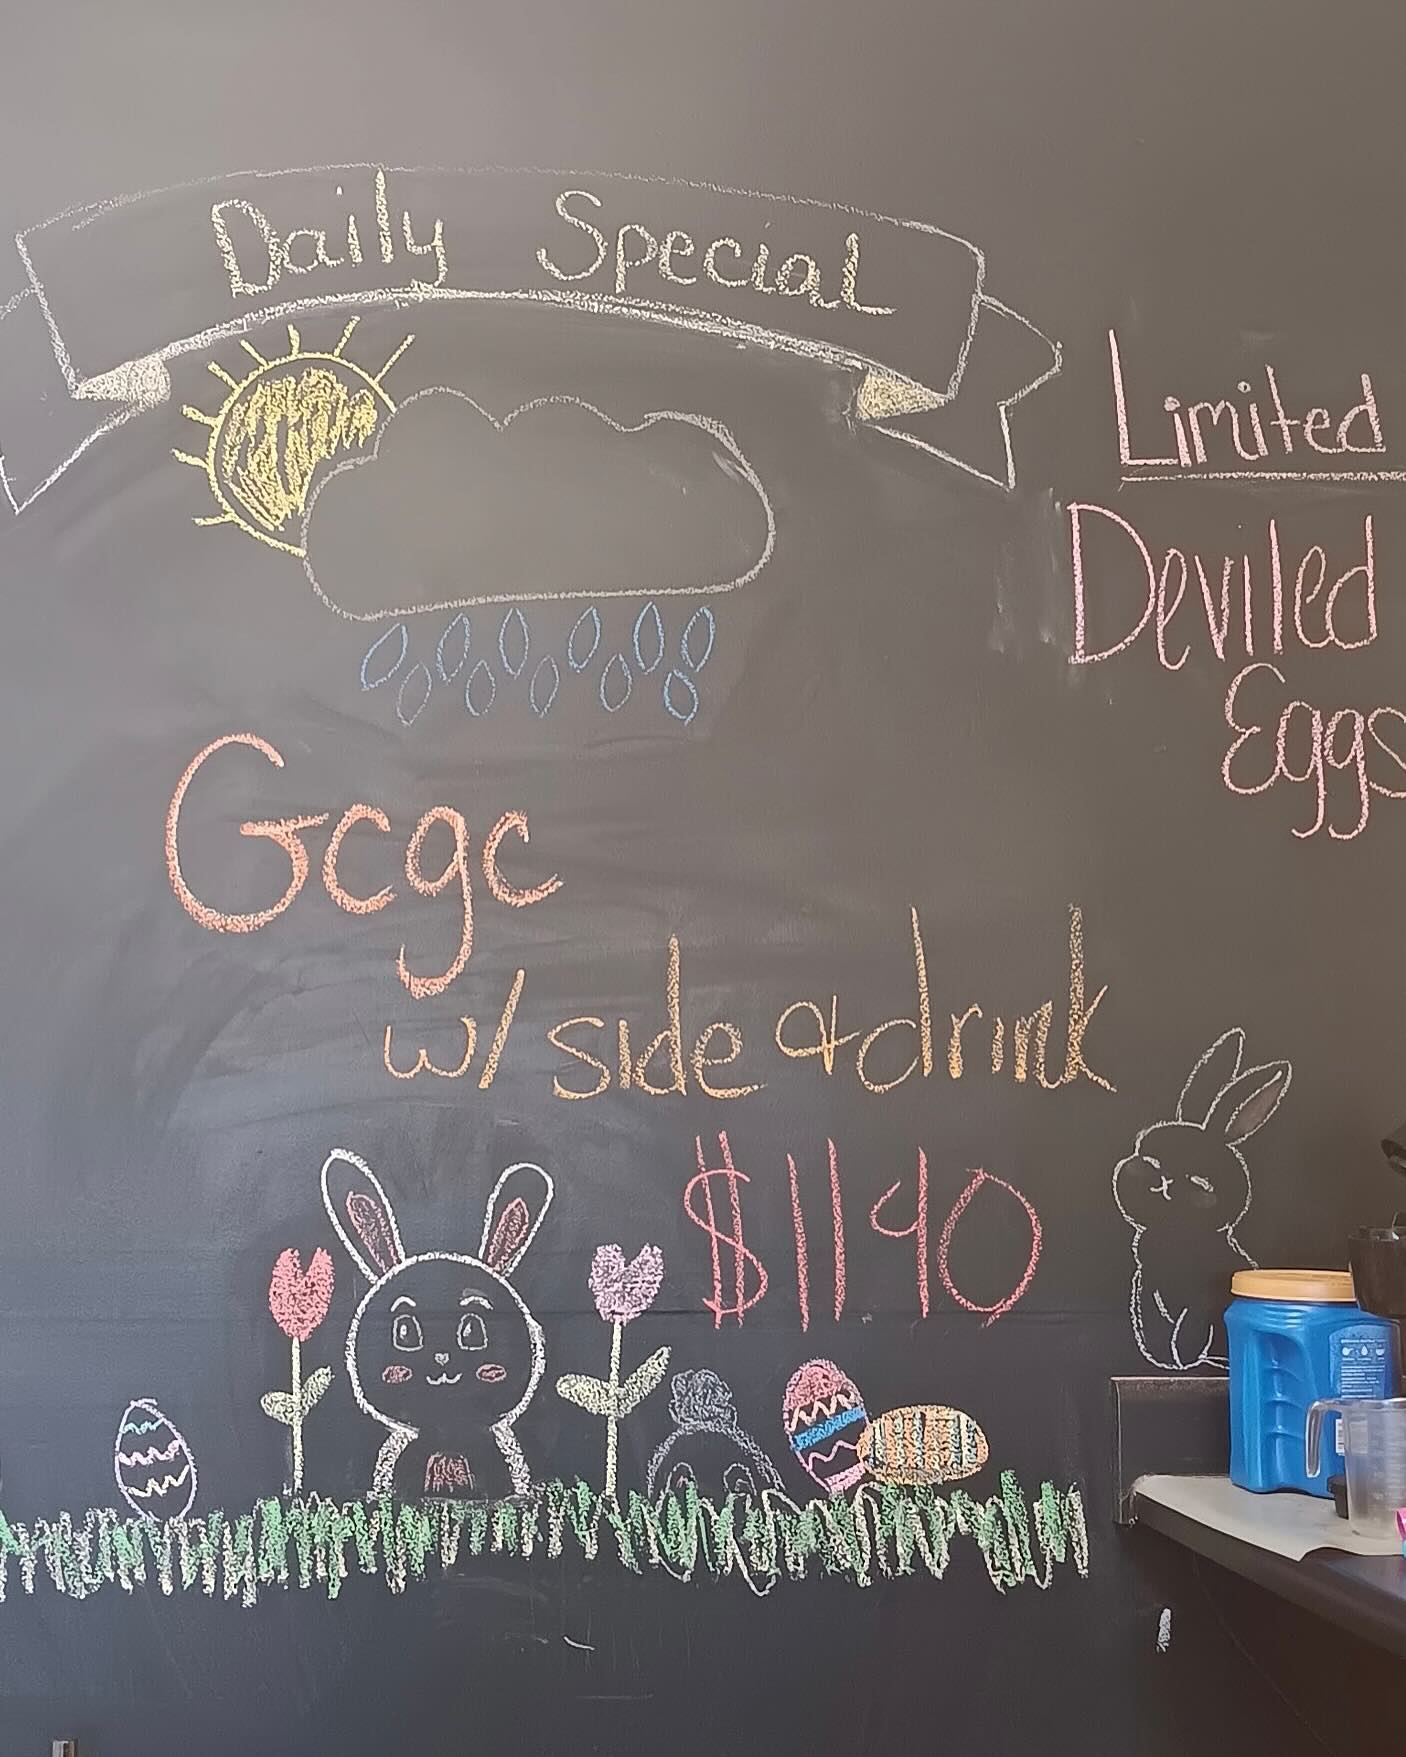 Daily Special
Limited
Deviled
Eggs
Gcgc
w/ side & drink
$1190